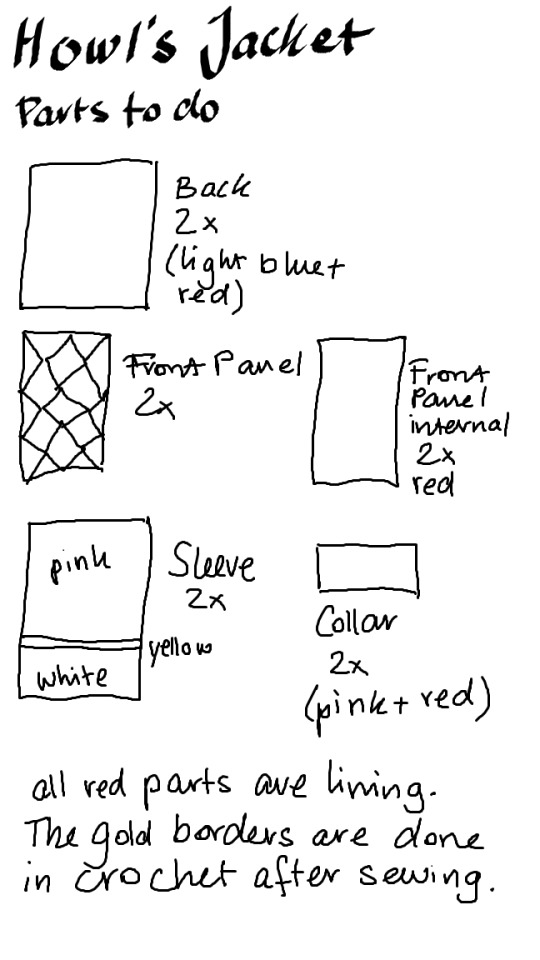 Howl's Jacket
Parts to do
Back
2x
(light blue+
red)
Front Panel
2x
Front
Panel
internal
2x
red
pink
Sleeve
2x
yellow
white
Collar
2x
(pink+ red)
all red parts are lining.
The gold borders are done
in crochet after sewing.